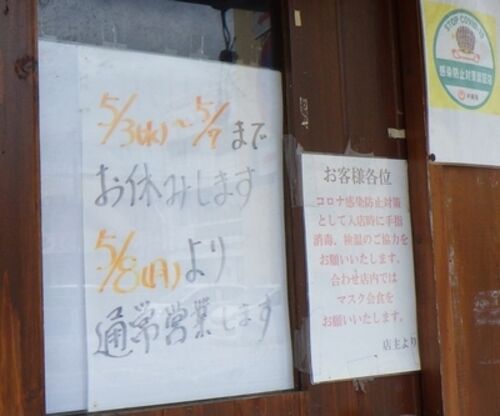 5/3(水)~5/7まで
お休みします
5/8(月)より
通常営業します
お客様各位
コロナ感染防止対策
として入店時に手指
消毒、検温のご協力を
お願いいたします。
合わせ店内では
マスク会食を
お願いいたします。
店主より
STOP COVID-19